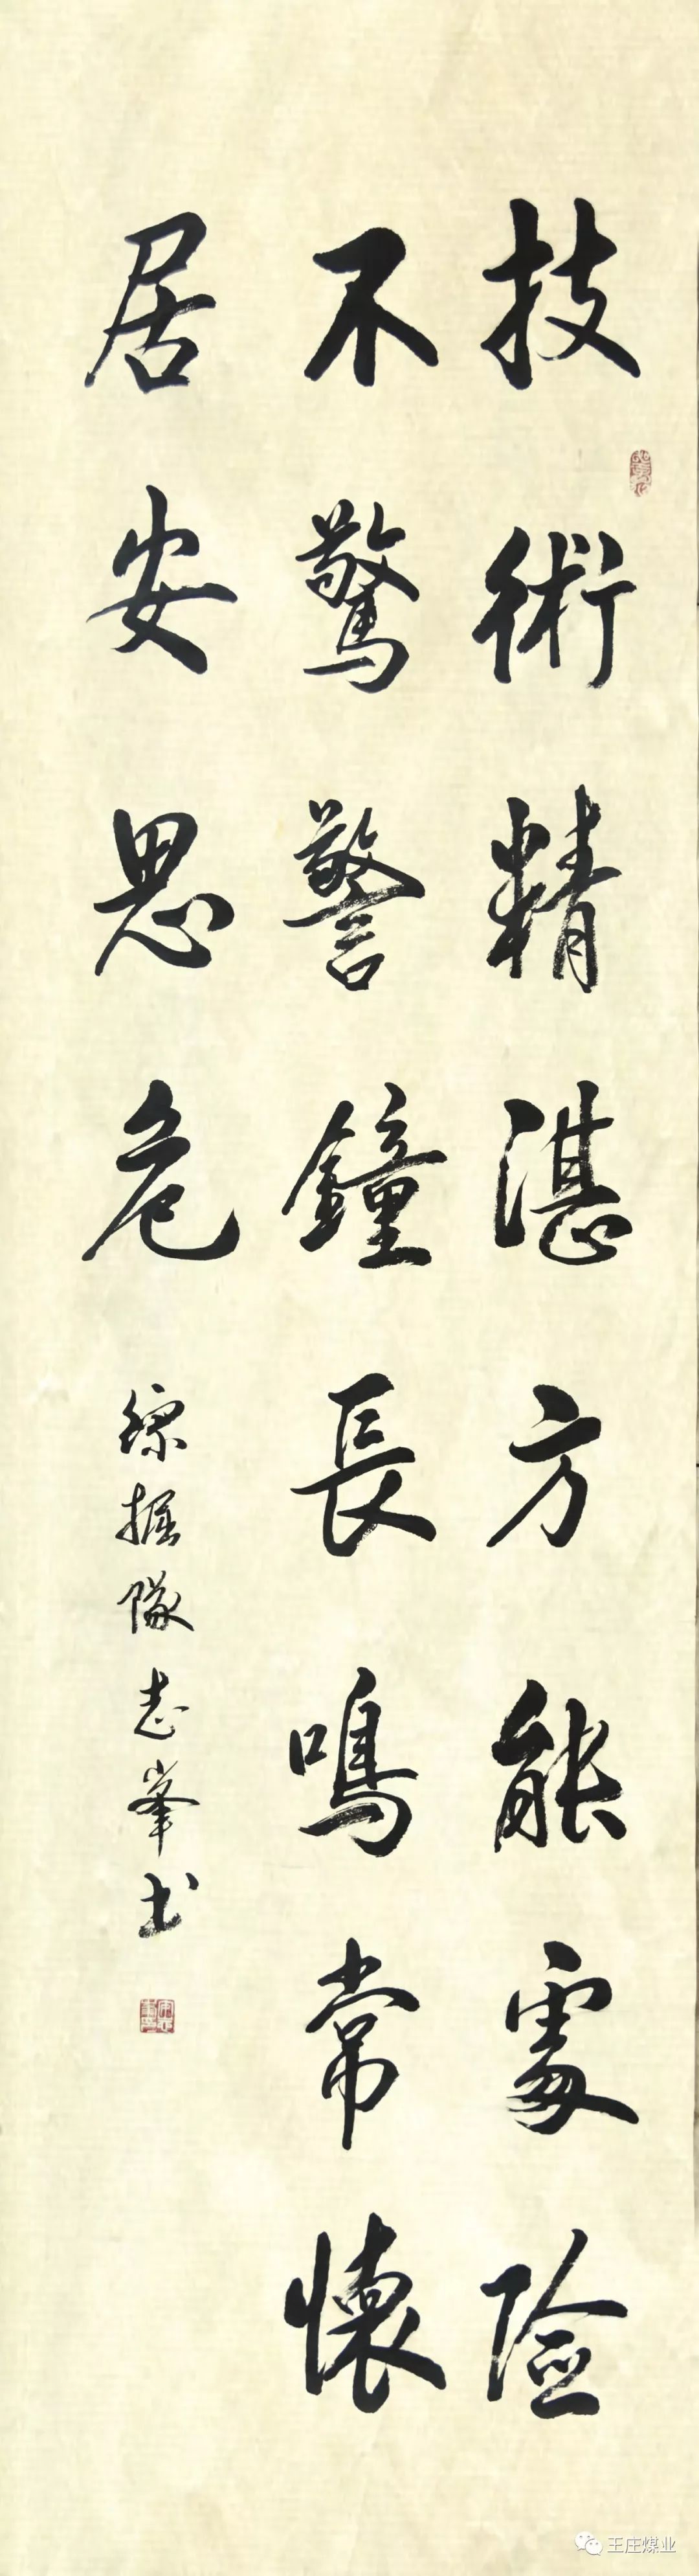 技術精湛方能處险
不驚警鐘長鳴常懷
居安思危
综掘隊志峯书
王庄煤业